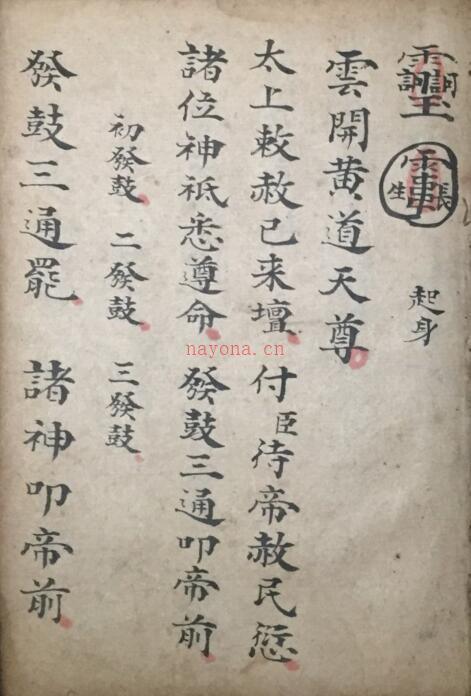 長生
起身
雲開黄道天尊
太上敕赦已来壇 付臣待帝赦民愆
諸位神祇悉遵命 發鼓三通叩帝前
初發鼓 二發鼓 三發鼓
發鼓三通罷 諸神叩帝前
nayona.cn